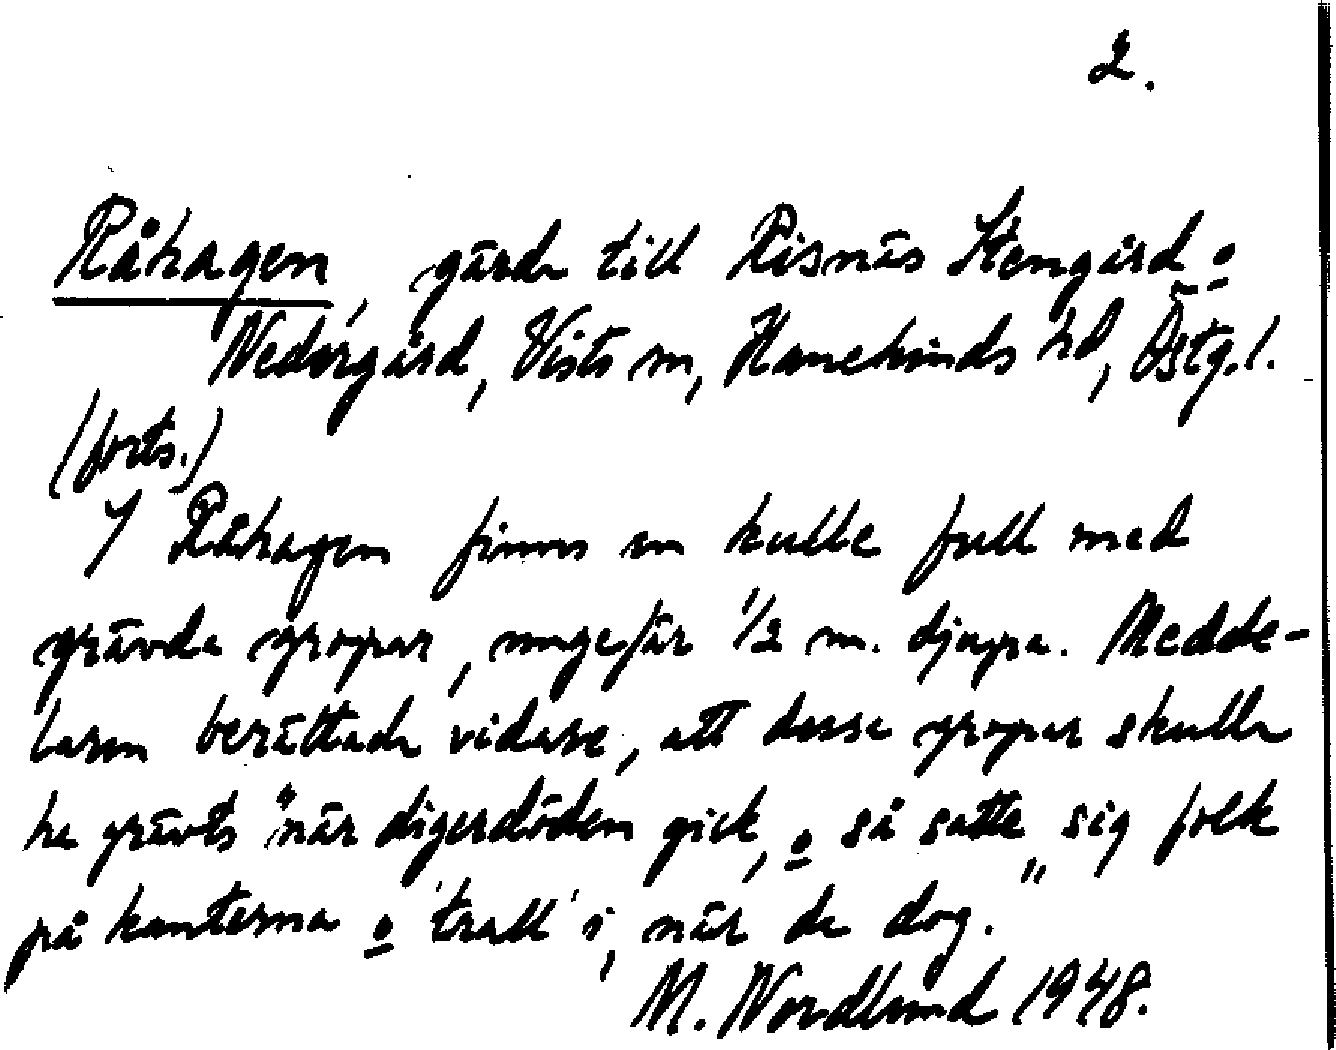 2.
Råhagen, gärde till Risnäs Stengård o
Nedergård, Vists sn, Hanekinds hd, Östg. l.
(forts.)
I Råhagen finns en kulle full med
grävda gropar, ungefär 1/2 m. djupa. Medde-
laren berättade vidare, att dessa gropar skulle
ha grävts "när digerdöden gick, o så satte sig folk
på kanterna o 'trall' i, när de dog."
M. Nordlund 1948.